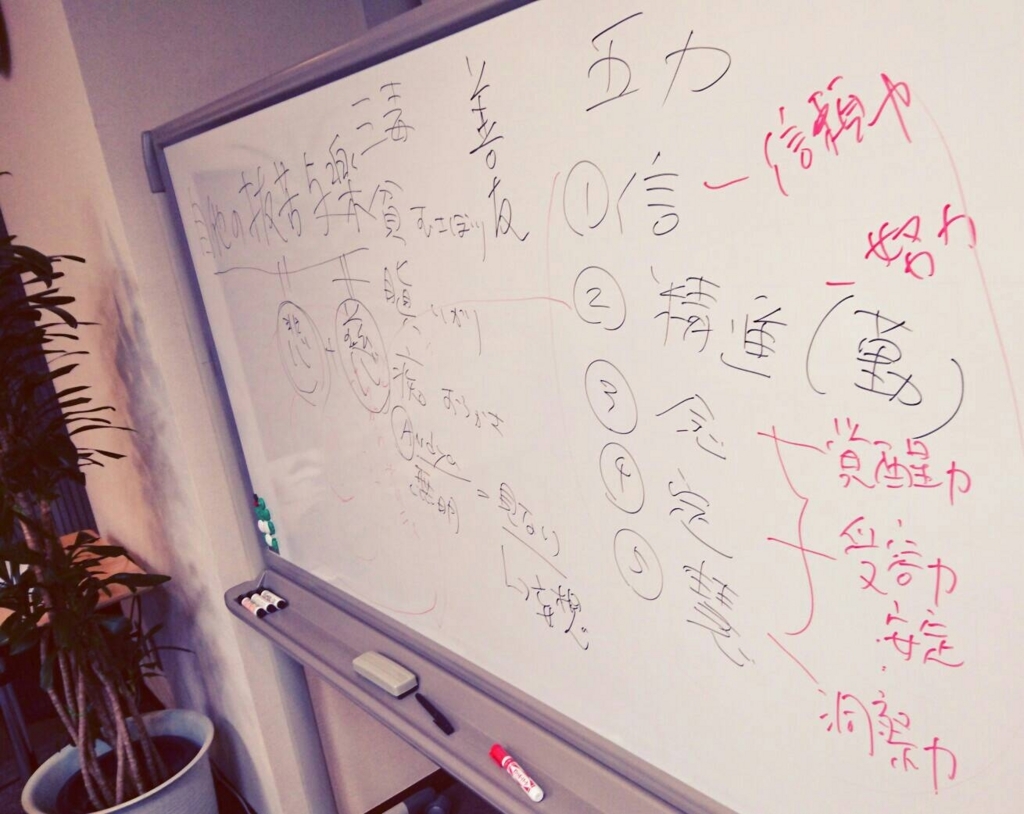 三毒
善友
五力
自他の抜苦与楽
悲・慈
貪 むさぼり
瞋 いかり
痴 おろかさ
Avidya
無明 = 見ない
① 信 ー 信頼力
② 精進 (勤) ー 努力
③ 念
④
⑤
覚醒力
受容力
安定
洞察力